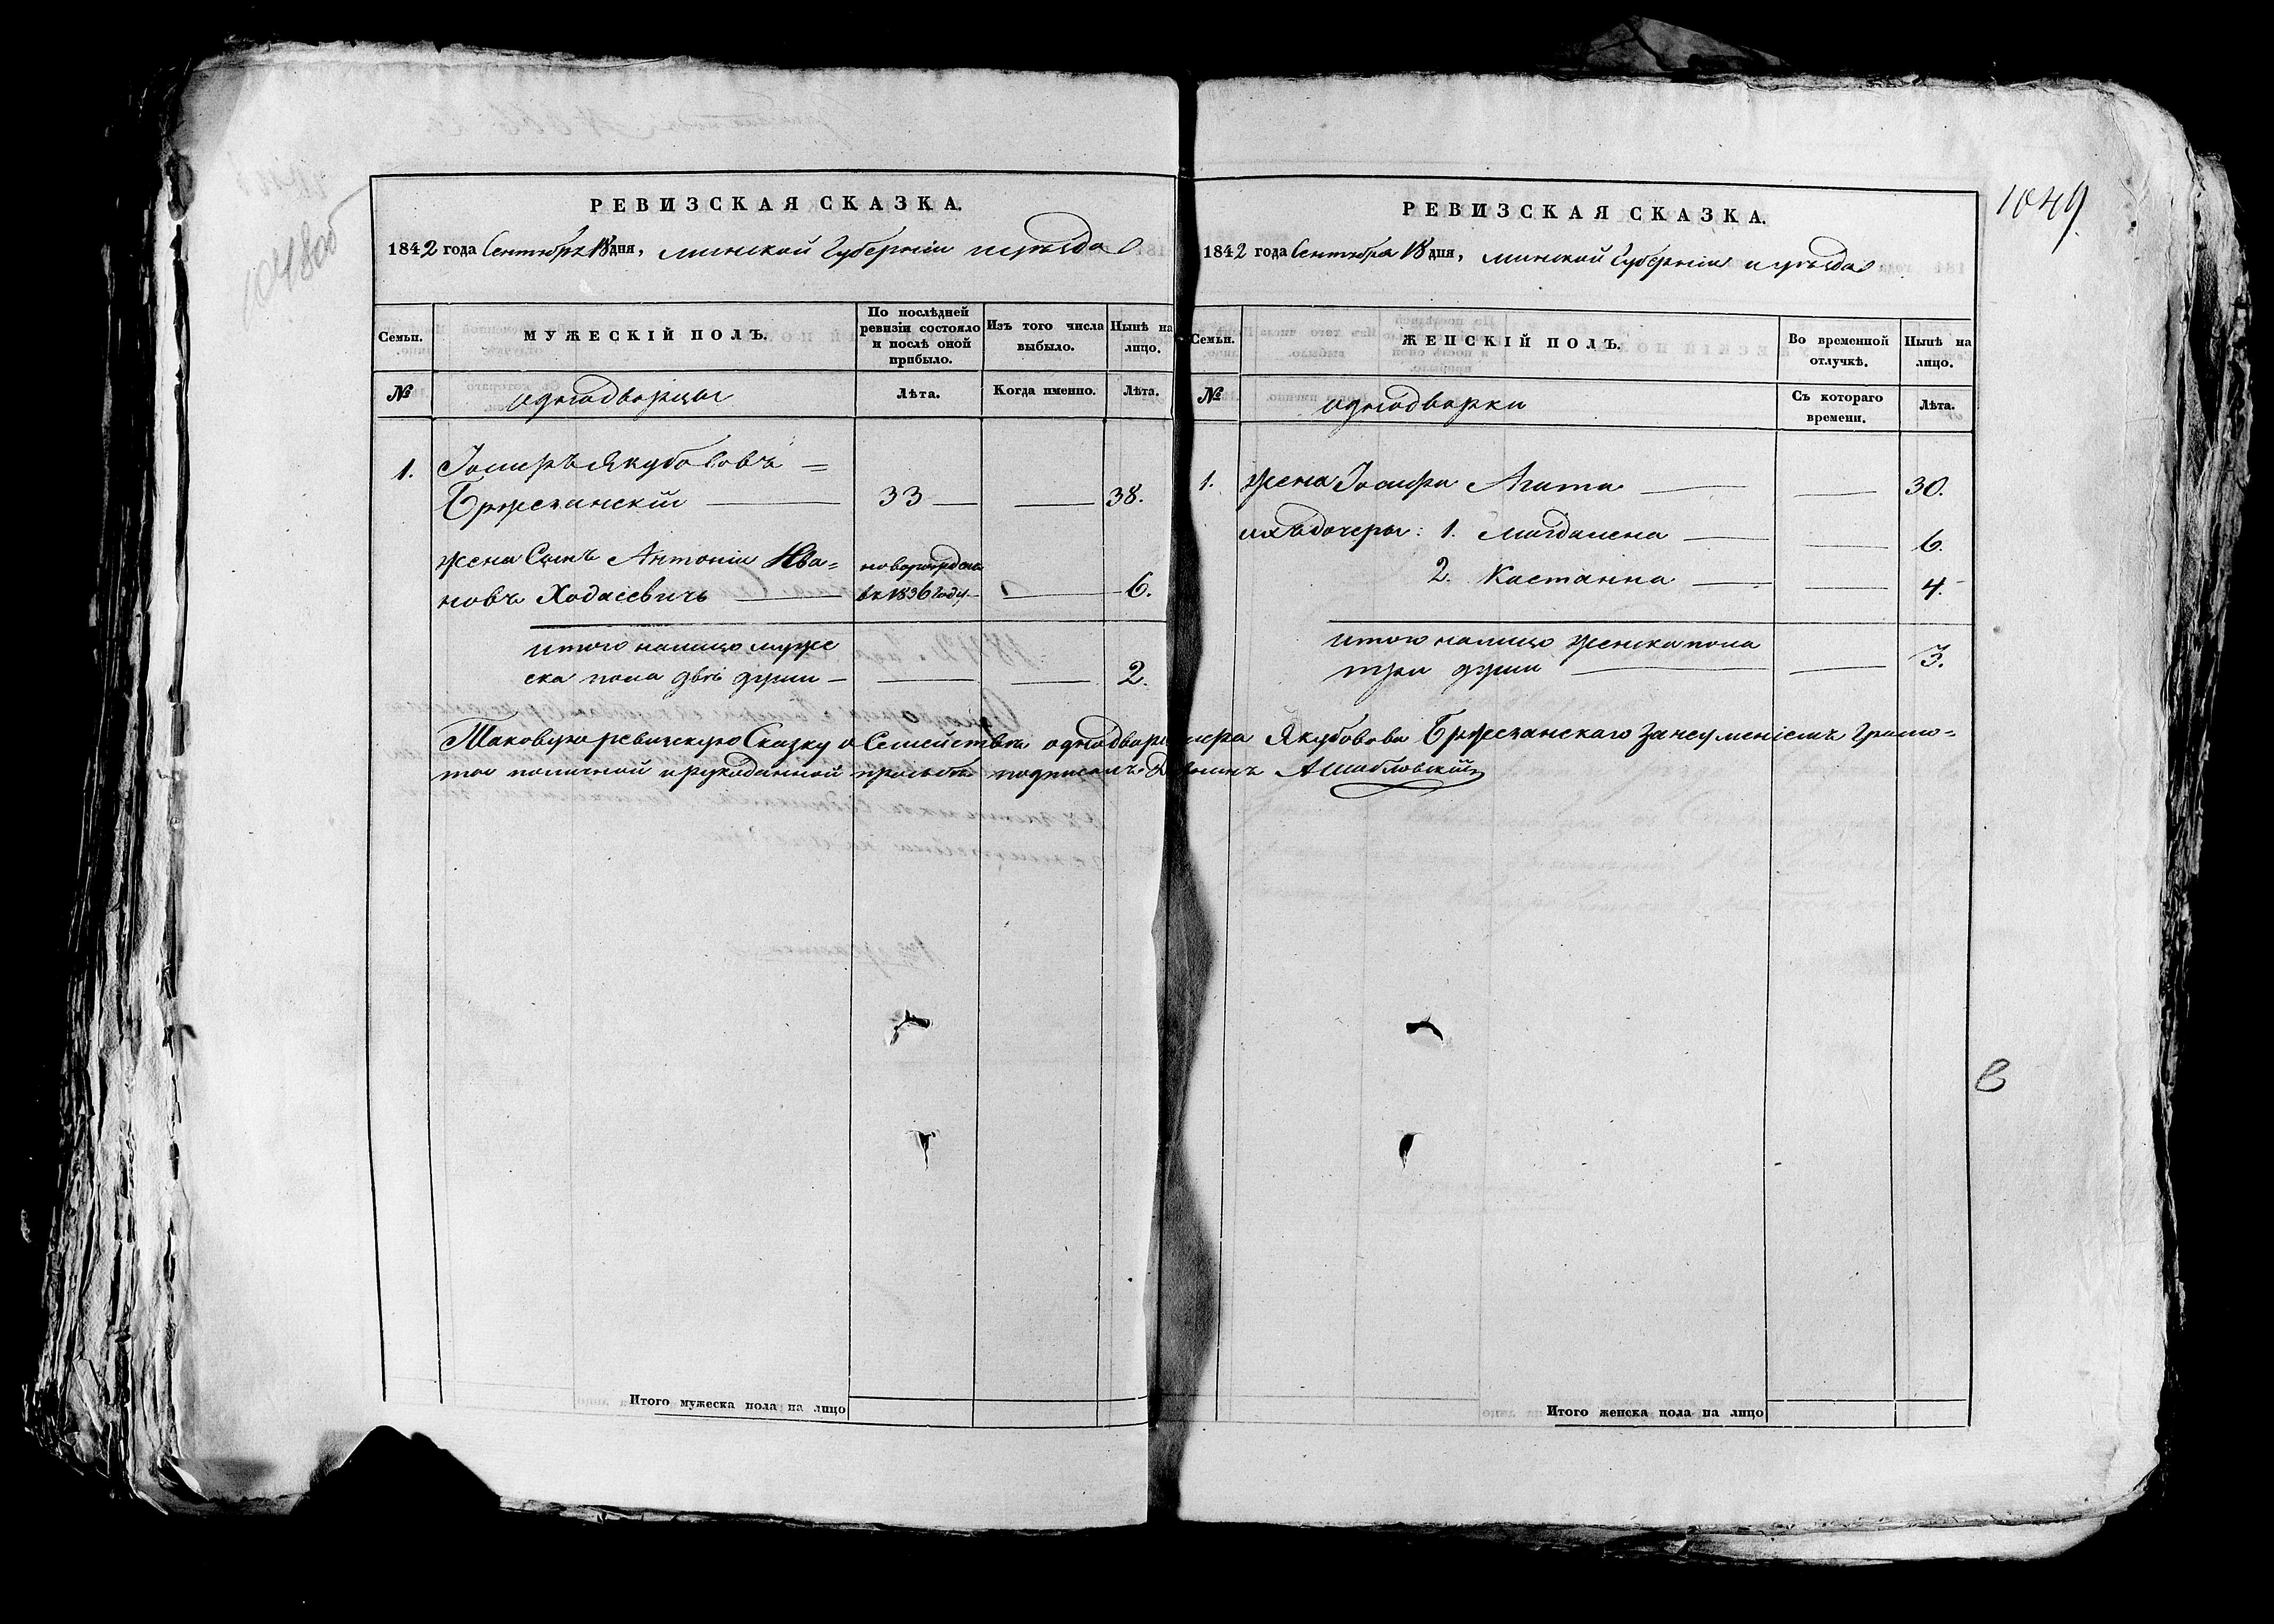 1048об
1049.
РЕВИЗСКАЯ СКАЗКА.
1842 года Сентября 18 дня, минской Губерніи и уѣзда
Семьи.
МУЖЕСКІЙ ПОЛЪ.
По послѣдней ревизіи состояло и послѣ оной прибыло.
Изъ того числа выбыло.
Нынѣ на лицо.
№
однодворцы
Лѣта.
Когда именно.
Лѣта.
1. Іосифъ Якубовъ
Бржезанскій 33 38.
жена Сынъ Антоній Ива=
новъ Ходасевичъ новорожденъ въ 1836 году 6.
итого налицо муже
ска пола двѣ души 2.
РЕВИЗСКАЯ СКАЗКА.
1842 года Сентября 18 дня, минской Губерніи и уѣзда
Семьи.
ЖЕНСКІЙ ПОЛЪ.
Во временной отлучкѣ.
Нынѣ на лицо.
№
однодворки
Съ котораго времени.
Лѣта.
1. жена Іосифа Агата 30.
ихъ дочеры: 1. Магдалена 6.
2. Костанца 4.
итого налицо женска пола
три души 3.
Таковую ревизскую Сказку о Семействѣ однодворца Якубова Бржезанскаго За неуменіемъ Грамо=
ты поличной и рукоданной просьбѣ подписалъ Шабловскій
Итого мужеска пола на лицо
Итого женска пола на лицо